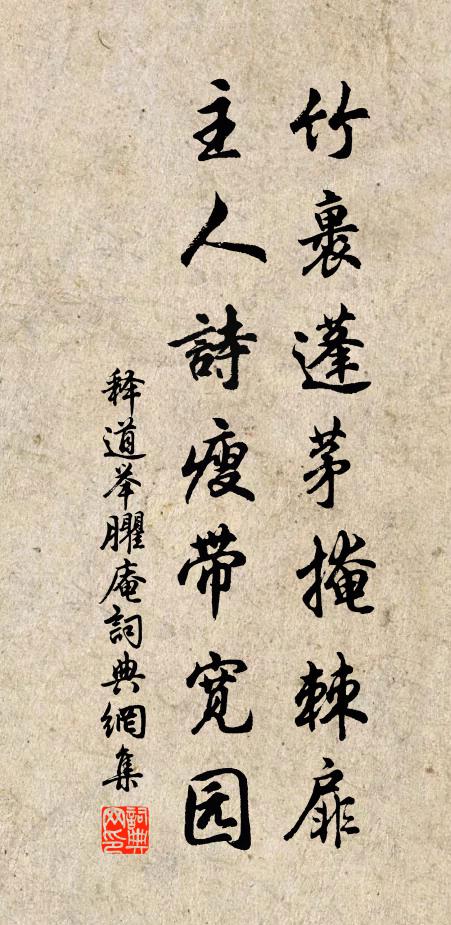 竹裏蓬茅掩棘扉
主人詩瘦带宽园
释道举臞庵詞典網集
詞典網印